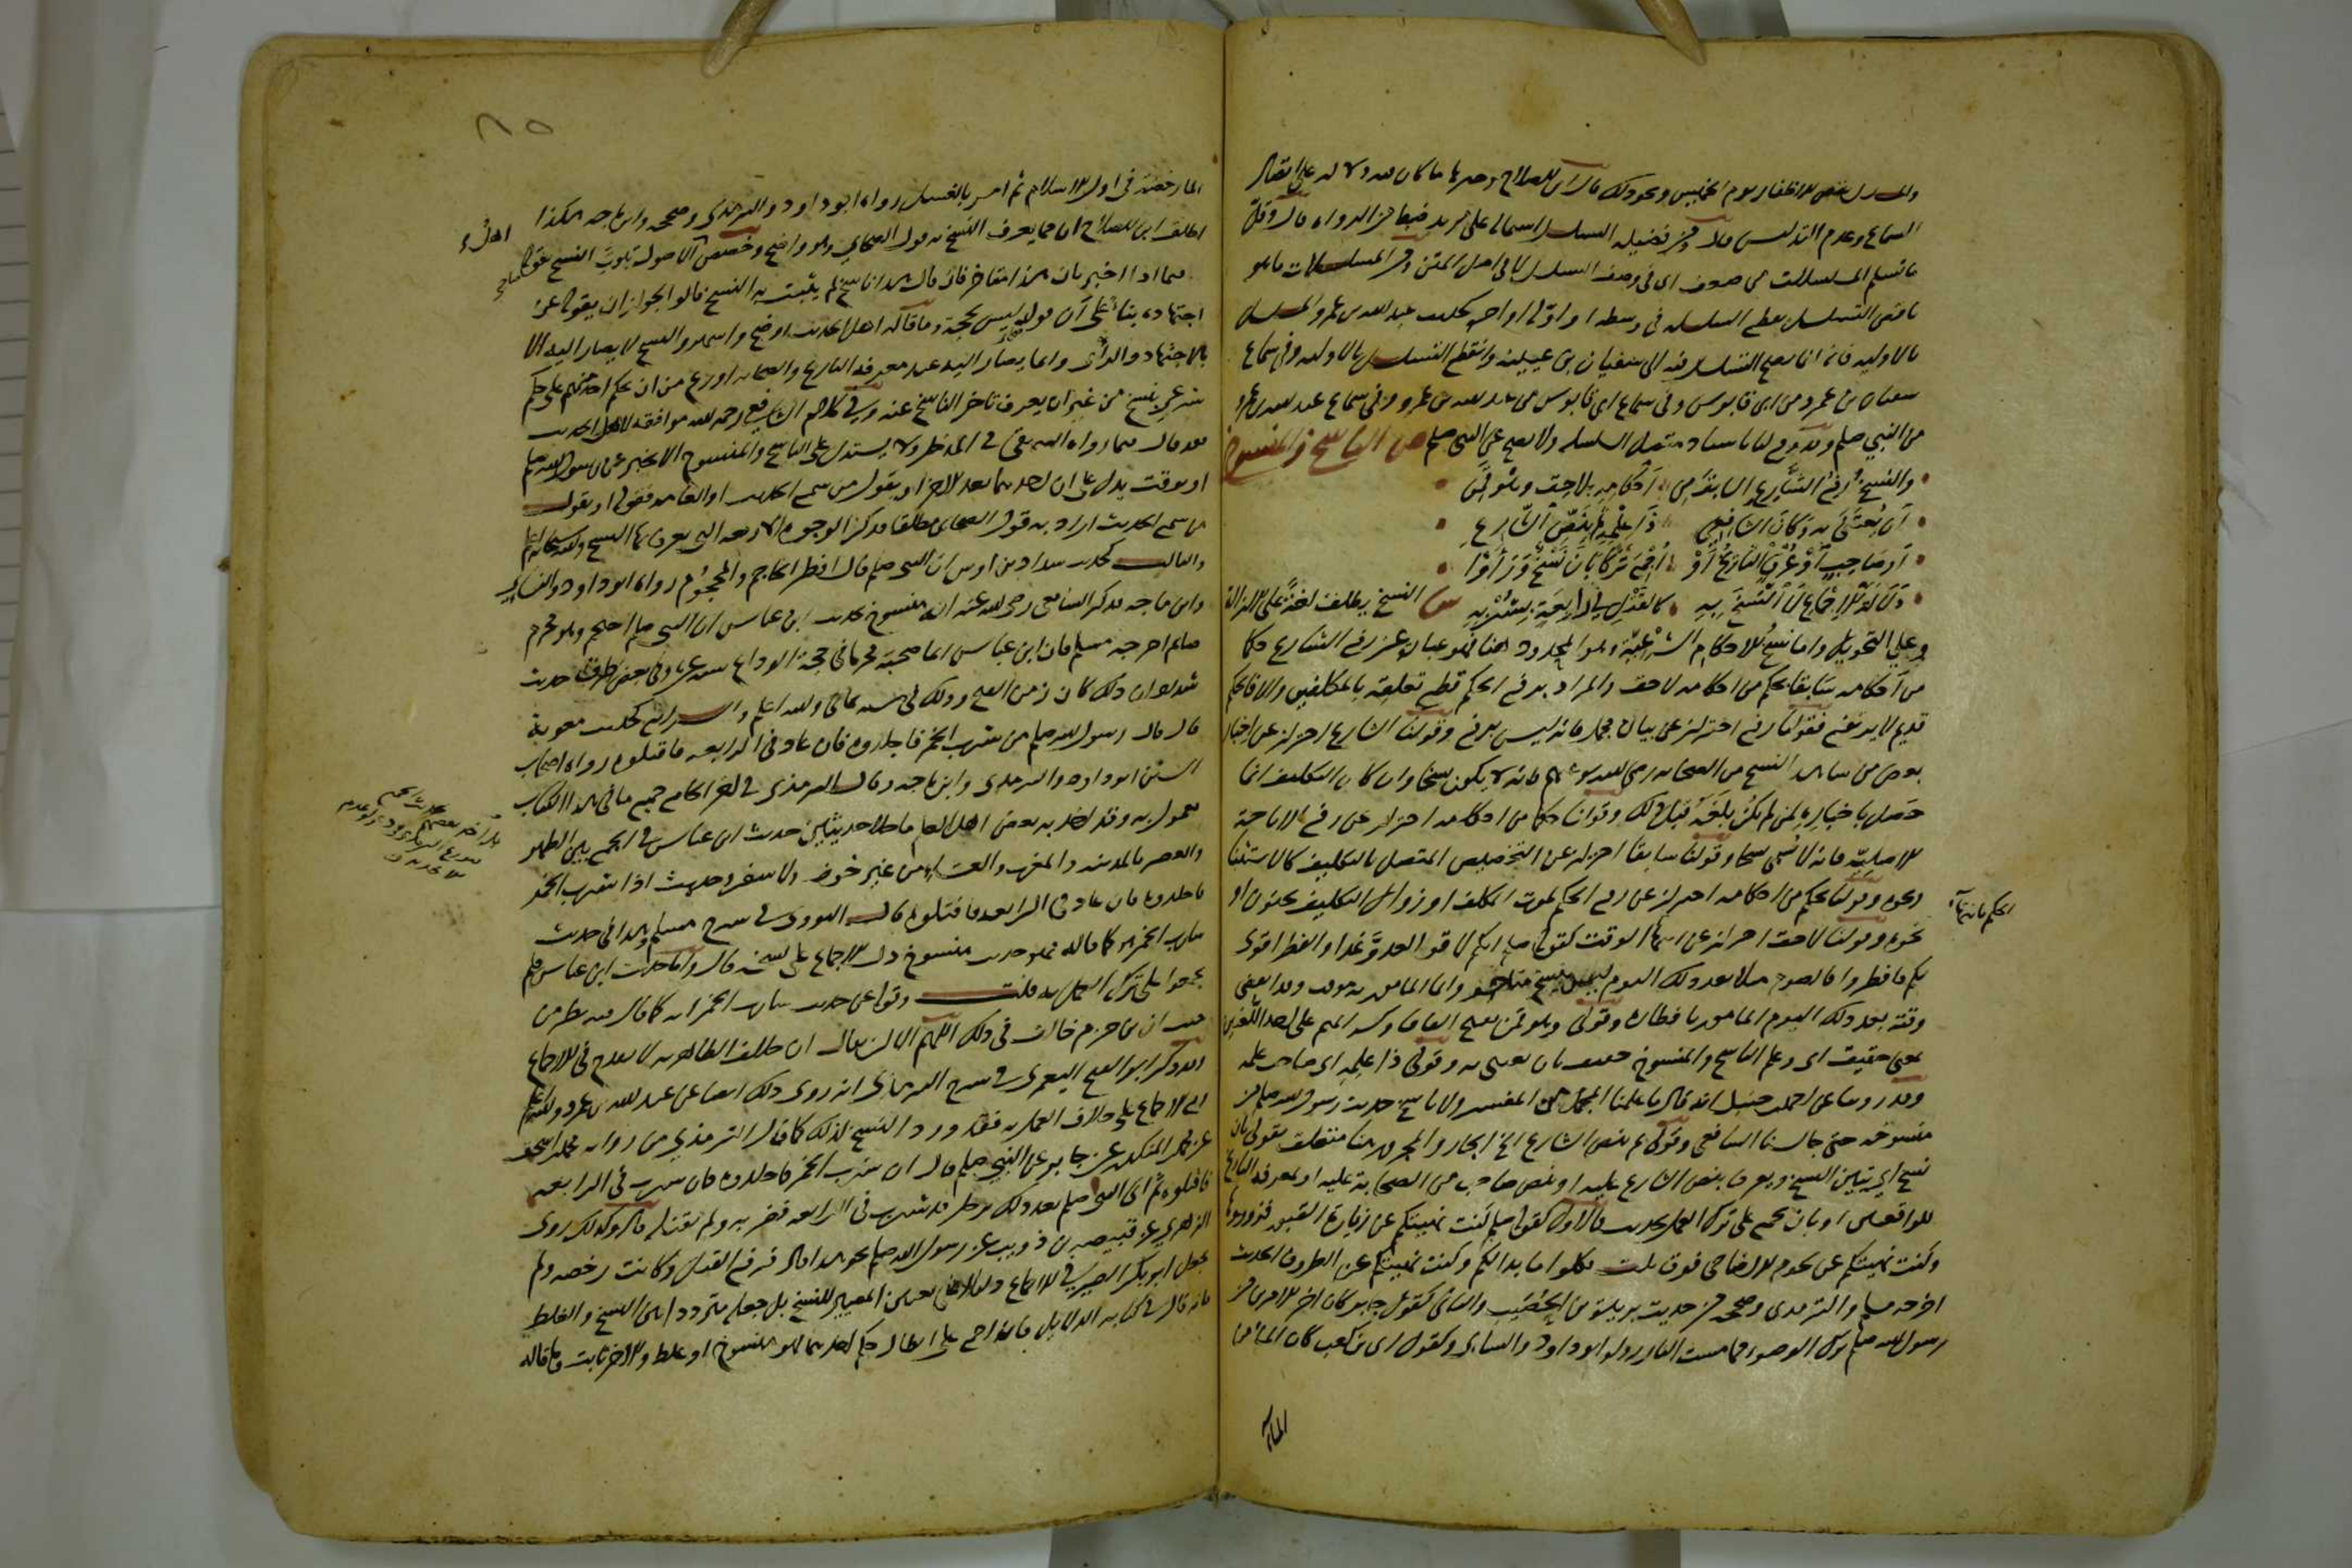 والمسلسل بقص الاظفار يوم الخميس ونحو ذلك قال ابن الصلاح وخيرها ما كان فيه دلالة على اتصال
السماع وعدم التدليس قال ومن فضيلة التسلسل اشتماله على مزيد ضبط من الرواة قال وقل
ما تسلم المسلسلات من ضعف اى فى وصف التسلسل لا فى اصل المتن ومن المسلسلات ما هو
ناقص التسلسل بقطع السلسلة فى وسطه او اوله او اخره كحديث عبد الله بن عمرو المسلسل
بالاولية فانه انما يصح التسلسل فيه الى سفيان بن عيينة وانقطع التسلسل بالاولية فى سماع
سفيان من عمرو وفى سماع عمرو من ابى قابوس وفى سماع ابى قابوس من عبد الله بن عمرو وفى سماع عبد الله بن عمرو
من النبي صلعم وقد وقع لنا باسناد متصل السلسلة ولا يصح عن النبى صلعم ص الناسخ والمنسوخ
والنسخ رفع الشارع السابق من احكامه بلاحق وهو قمن
ان يعتنى به وكان الشافعي ذا علمه ثم بنص الشارع
او صاحب او عرف التاريخ او اجمع تركا بان نسخ وراوا
دلالة الاجماع لا النسخ به كالقتل في رابعة بشربه ش النسخ يطلق لغة على الازالة
وعلى التحويل واما نسخ الاحكام الشرعية وهو المحدود هنا فهو عبارة عن رفع الشارع حكما
من احكامه سابقا بحكم من احكامه لاحق والمراد برفع الحكم قطع تعلقه بالمكلفين والا فالحكم
قديم لا يرتفع فقولنا رفع احتراز عن بيان مجمل فانه ليس برفع وقولنا الشارع احتراز عن اخبار
بعض من شاهد النسخ من الصحابة رضى الله عنهم فانه لا يكون نسخا وان كان التكليف انما
حصل باخباره لمن لم يكن بلغه قبل ذلك وقولنا حكما من احكامه احتراز عن رفع الاباحة
الاصلية فانه لا يسمى نسخا وقولنا سابقا احتراز عن التخصيص المتصل بالتكليف كالاستثنا
ونحوه وقولنا بحكم من احكامه احتراز عن رفع الحكم بموت المكلف او زوال التكليف بجنون او
نحوه وقولنا لاحق احتراز عن انتهاء الوقت كقوله صلعم انكم لاقوا العدو غدا والفطر اقوى
لكم فافطروا فالصوم مثلا بعد ذلك اليوم ليس بنسخ متاخر وانما المامور به موقت وقد انقضى
وقته بعد ذلك اليوم المامور بافطاره وقوله وهو قمن بفتح القاف وكسر الميم على احد اللغتين
بمعنى حقيق اى وعلم الناسخ والمنسوخ حقيق بان يعتنى به وقوله ذا علمه اى صاحب علمه
وقد روينا عن احمد بن حنبل انه قال ما علمنا المجمل من المفسر ولا ناسخ حديث رسول الله صلعم من
منسوخه حتى جالسنا الشافعي وقوله ثم بنص الشارع الخ الجار والمجرور هنا متعلق بقوله بان
نسخ اي يتبين النسخ ويعرف بنص الشارع عليه او بنص صاحب من الصحابة عليه او بمعرفة التاريخ
للواقعتين او بان يجمع على ترك العمل بحديث فالاول كقوله صلعم كنت نهيتكم عن زيارة القبور فزوروها
وكنت نهيتكم عن لحوم الاضاحي فوق ثلث فكلوا ما بدا لكم وكنت نهيتكم عن الظروف الحديث
اخرجه مسلم والترمذى وصححه من حديث بريدة بن الحصيب والثانى كقول جابر كان اخر الامرين من
رسول الله صلعم ترك الوضوء مما مست النار رواه ابو داود والنسائي وكقول ابى بن كعب كان الماء من
الماء
الماء رخصة فى اول الاسلام ثم امر بالغسل رواه ابو داود والترمذى وصححه وابن ماجه هكذا
اطلق ابن الصلاح ان مما يعرف النسخ به قول الصحابي وهو واضح وخصص اهل الاصول ثبوت النسخ بقول الصحابي
فيما اذا اخبر بان هذا متاخر فان قال هذا ناسخ لم يثبت به النسخ قالوا لجواز ان يقوله عن
اجتهاده بناء على ان قوله ليس بحجة وما قاله اهل الحديث اوضح واشهر والنسخ لا يصار اليه
بالاجتهاد والرأى وانما يصار اليه عند معرفة التاريخ والصحابة اورع من ان يحكم احد منهم على حكم
شرعي بنسخ من غير ان يعرف تاخر الناسخ عنه وفي كلام الشافعي رحمه الله موافقة لاهل الحديث
فقد قال فيما رواه البيهقى فى المدخل ولا يستدل على الناسخ والمنسوخ الا بخبر عن رسول الله صلعم
او بوقت يدل على ان احدهما بعد الاخر او بقول من سمع الحديث او العامة فقوله او بقول
من سمع الحديث اراد به قول الصحابى مطلقا فذكر الوجوه الاربعة التى يعرف بها النسخ والله سبحانه اعلم
والثالث كحديث شداد بن اوس ان النبى صلعم قال افطر الحاجم والمحجوم رواه ابو داود والنسائي
وابن ماجه فذكر الشافعى رضى الله عنه انه منسوخ بحديث ابن عباس ان النبى صلعم احتجم وهو محرم
صائم اخرجه مسلم فان ابن عباس انما صحبه محرما فى حجة الوداع سنة عشر وفى بعض طرق حديث
شداد ان ذلك كان زمن الفتح وذلك فى سنة ثمان والله اعلم والرابع كحديث معوية
قال قال رسول الله صلعم من شرب الخمر فاجلدوه فان عاد فى الرابعة فاقتلوه رواه اصحاب
السنن ابو داود والترمذى وابن ماجه وقال الترمذى فى اخر الجامع جميع ما فى هذا الكتاب
معمول به وقد اخذ به بعض اهل العلم ما خلا حديثين حديث ابن عباس فى الجمع بين الظهر
والعصر بالمدينة والمغرب والعشاء من غير خوف ولا سفر وحديث اذا شرب الخمر
فاجلدوه فان عاد فى الرابعة فاقتلوه قال النووى فى شرح مسلم وهذا فى حديث
شارب الخمر هو كما قاله فهو حديث منسوخ دل الاجماع على نسخه قال واما حديث ابن عباس فلم
يجمعوا على ترك العمل به قلت وقوله عن حديث شارب الخمر انه كما قال فيه نظر من
حيث ان ابن حزم خالف فى ذلك اللهم الا ان يقال ان خلاف الظاهرية لا يقدح فى الاجماع
وقد ذكر ابو الفتح اليعمرى فى شرح الترمذى انه روى ذلك ايضا عن عبد الله بن عمرو والله اعلم
الاجماع على خلاف العمل به فقد ورد النسخ لذلك كما قال الترمذى من رواية محمد بن اسحق
عن محمد بن المنكدر عن جابر عن النبي صلعم قال ان شرب الخمر فاجلدوه فان شرب فى الرابعة
فاقتلوه ثم اتى النبى صلعم بعد ذلك برجل قد شرب فى الرابعة فضربه ولم يقتله قال وكذلك روى
الزهري عن قبيصة بن ذويب عن رسول الله صلعم نحو هذا قال فرفع القتل وكانت رخصة ولم
يجعل ابو بكر الصيرفى الاجماع دليلا على تعيين المصير للنسخ بل جعله متردد ا بين النسخ والغلط
فانه قال فى كتابه الدلايل فان اجمع على ابطال حكم احدهما فهو منسوخ او غلط والاخر ثابت وما قاله